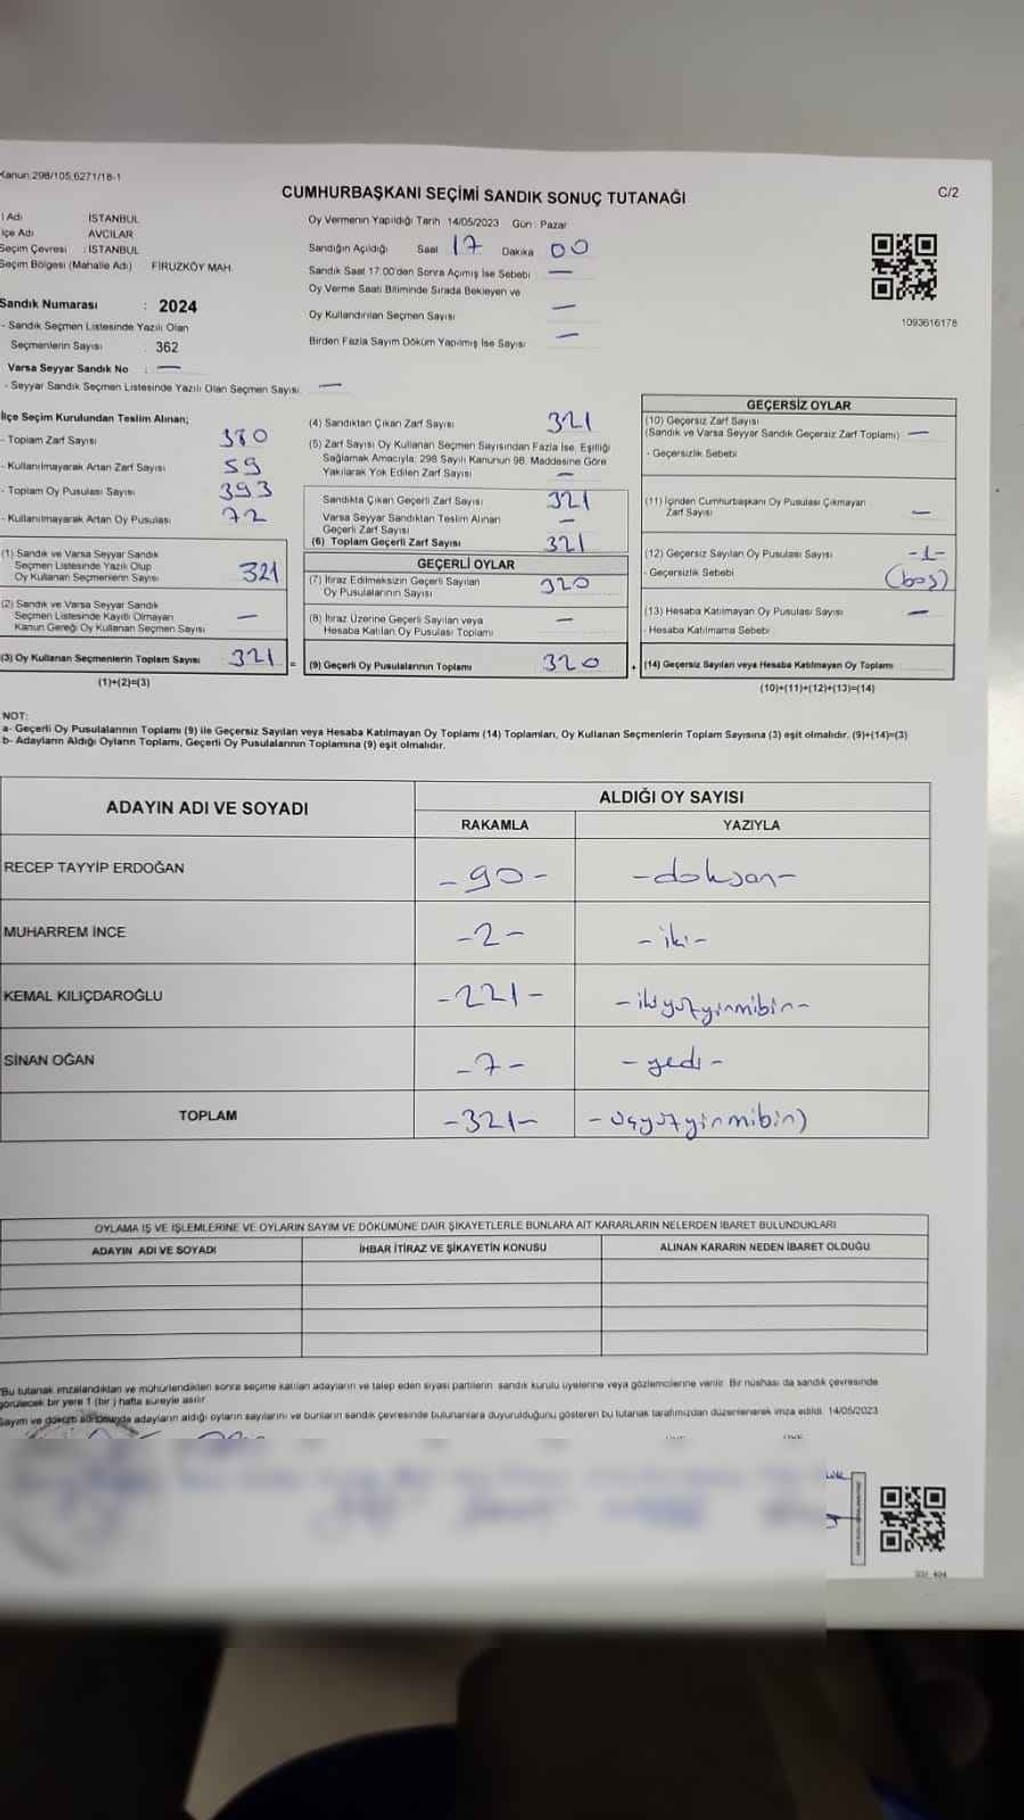 Kanun 298/105,6271/18-1
CUMHURBAŞKANI SEÇİMİ SANDIK SONUÇ TUTANAĞI
C/2
l Adı İSTANBUL
lçe Adı AVCILAR
Seçim Çevresi : İSTANBUL
Seçim Bölgesi (Mahalle Adı) FİRUZKÖY MAH.
Oy Vermenin Yapıldığı Tarih 14/05/2023 Gün: Pazar
Sandığın Açıldığı Saat 17 Dakika 00
Sandık Saat 17:00'den Sonra Açılmış İse Sebebi —
Oy Verme Saati Bitiminde Sırada Bekleyen ve
Oy Kullandırılan Seçmen Sayısı —
Birden Fazla Sayım Döküm Yapılmış İse Sayısı —
1093616178
Sandık Numarası : 2024
- Sandık Seçmen Listesinde Yazılı Olan
Seçmenlerin Sayısı 362
Varsa Seyyar Sandık No : —
- Seyyar Sandık Seçmen Listesinde Yazılı Olan Seçmen Sayısı —
İlçe Seçim Kurulundan Teslim Alınan;
- Toplam Zarf Sayısı 380
- Kullanılmayarak Artan Zarf Sayısı 59
- Toplam Oy Pusulası Sayısı 393
- Kullanılmayarak Artan Oy Pusulası 72
(1) Sandık ve Varsa Seyyar Sandık
Seçmen Listesinde Yazılı Olup
Oy Kullanan Seçmenlerin Sayısı 321
(2) Sandık ve Varsa Seyyar Sandık
Seçmen Listesinde Kayıtlı Olmayan
Kanun Gereği Oy Kullanan Seçmen Sayısı —
(3) Oy Kullanan Seçmenlerin Toplam Sayısı 321 =
(1)+(2)=(3)
(4) Sandıktan Çıkan Zarf Sayısı 321
(5) Zarf Sayısı Oy Kullanan Seçmen Sayısından Fazla İse, Eşitliği
Sağlamak Amacıyla; 298 Sayılı Kanunun 98. Maddesine Göre
Yakılarak Yok Edilen Zarf Sayısı —
Sandıkta Çıkan Geçerli Zarf Sayısı 321
Varsa Seyyar Sandıktan Teslim Alınan
Geçerli Zarf Sayısı —
(6) Toplam Geçerli Zarf Sayısı 321
GEÇERLİ OYLAR
(7) İtiraz Edilmeksizin Geçerli Sayılan
Oy Pusulalarının Sayısı 320
(8) İtiraz Üzerine Geçerli Sayılan veya
Hesaba Katılan Oy Pusulası Toplamı —
(9) Geçerli Oy Pusulalarının Toplamı 320 +
GEÇERSİZ OYLAR
(10) Geçersiz Zarf Sayısı
(Sandık ve Varsa Seyyar Sandık Geçersiz Zarf Toplamı) —
- Geçersizlik Sebebi
(11) İçinden Cumhurbaşkanı Oy Pusulası Çıkmayan
Zarf Sayısı —
(12) Geçersiz Sayılan Oy Pusulası Sayısı -1-
- Geçersizlik Sebebi (boş)
(13) Hesaba Katılmayan Oy Pusulası Sayısı —
- Hesaba Katılmama Sebebi
(14) Geçersiz Sayılan veya Hesaba Katılmayan Oy Toplamı
(10)+(11)+(12)+(13)=(14)
NOT:
a- Geçerli Oy Pusulalarının Toplamı (9) ile Geçersiz Sayılan veya Hesaba Katılmayan Oy Toplamı (14) Toplamları, Oy Kullanan Seçmenlerin Toplam Sayısına (3) eşit olmalıdır. (9)+(14)=(3)
b- Adayların Aldığı Oyların Toplamı, Geçerli Oy Pusulalarının Toplamına (9) eşit olmalıdır.
ADAYIN ADI VE SOYADI
ALDIĞI OY SAYISI
RAKAMLA YAZIYLA
RECEP TAYYİP ERDOĞAN -90- -doksan-
MUHARREM İNCE -2- -iki-
KEMAL KILIÇDAROĞLU -221- -ikiyüzyirmibir-
SİNAN OĞAN -7- -yedi-
TOPLAM -321- -üçyüzyirmibir)
OYLAMA İŞ VE İŞLEMLERİNE VE OYLARIN SAYIM VE DÖKÜMÜNE DAİR ŞİKAYETLERLE BUNLARA AİT KARARLARIN NELERDEN İBARET BULUNDUKLARI
ADAYIN ADI VE SOYADI İHBAR İTİRAZ VE ŞİKAYETİN KONUSU ALINAN KARARIN NEDEN İBARET OLDUĞU
Bu tutanak imzalandıktan ve mühürlendikten sonra seçime katılan adayların ve talep eden siyasi partilerin sandık kurulu üyelerine veya gözlemcilerine verilir. Bir nüshası da sandık çevresinde
görülecek bir yere 1 (bir) hafta süreyle asılır.
Sayım ve döküm sonunda adayların aldığı oyların sayılarını ve bunların sandık çevresinde bulunanlara duyurulduğunu gösteren bu tutanak tarafımızdan düzenlenerek imza edildi. 14/05/2023